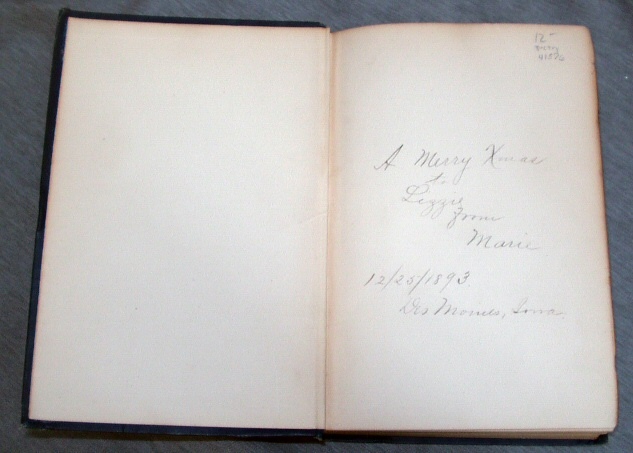 12
A Merry Xmas
to
Lizzie
from
Marie
12/25/1893.
Des Moines, Iowa.